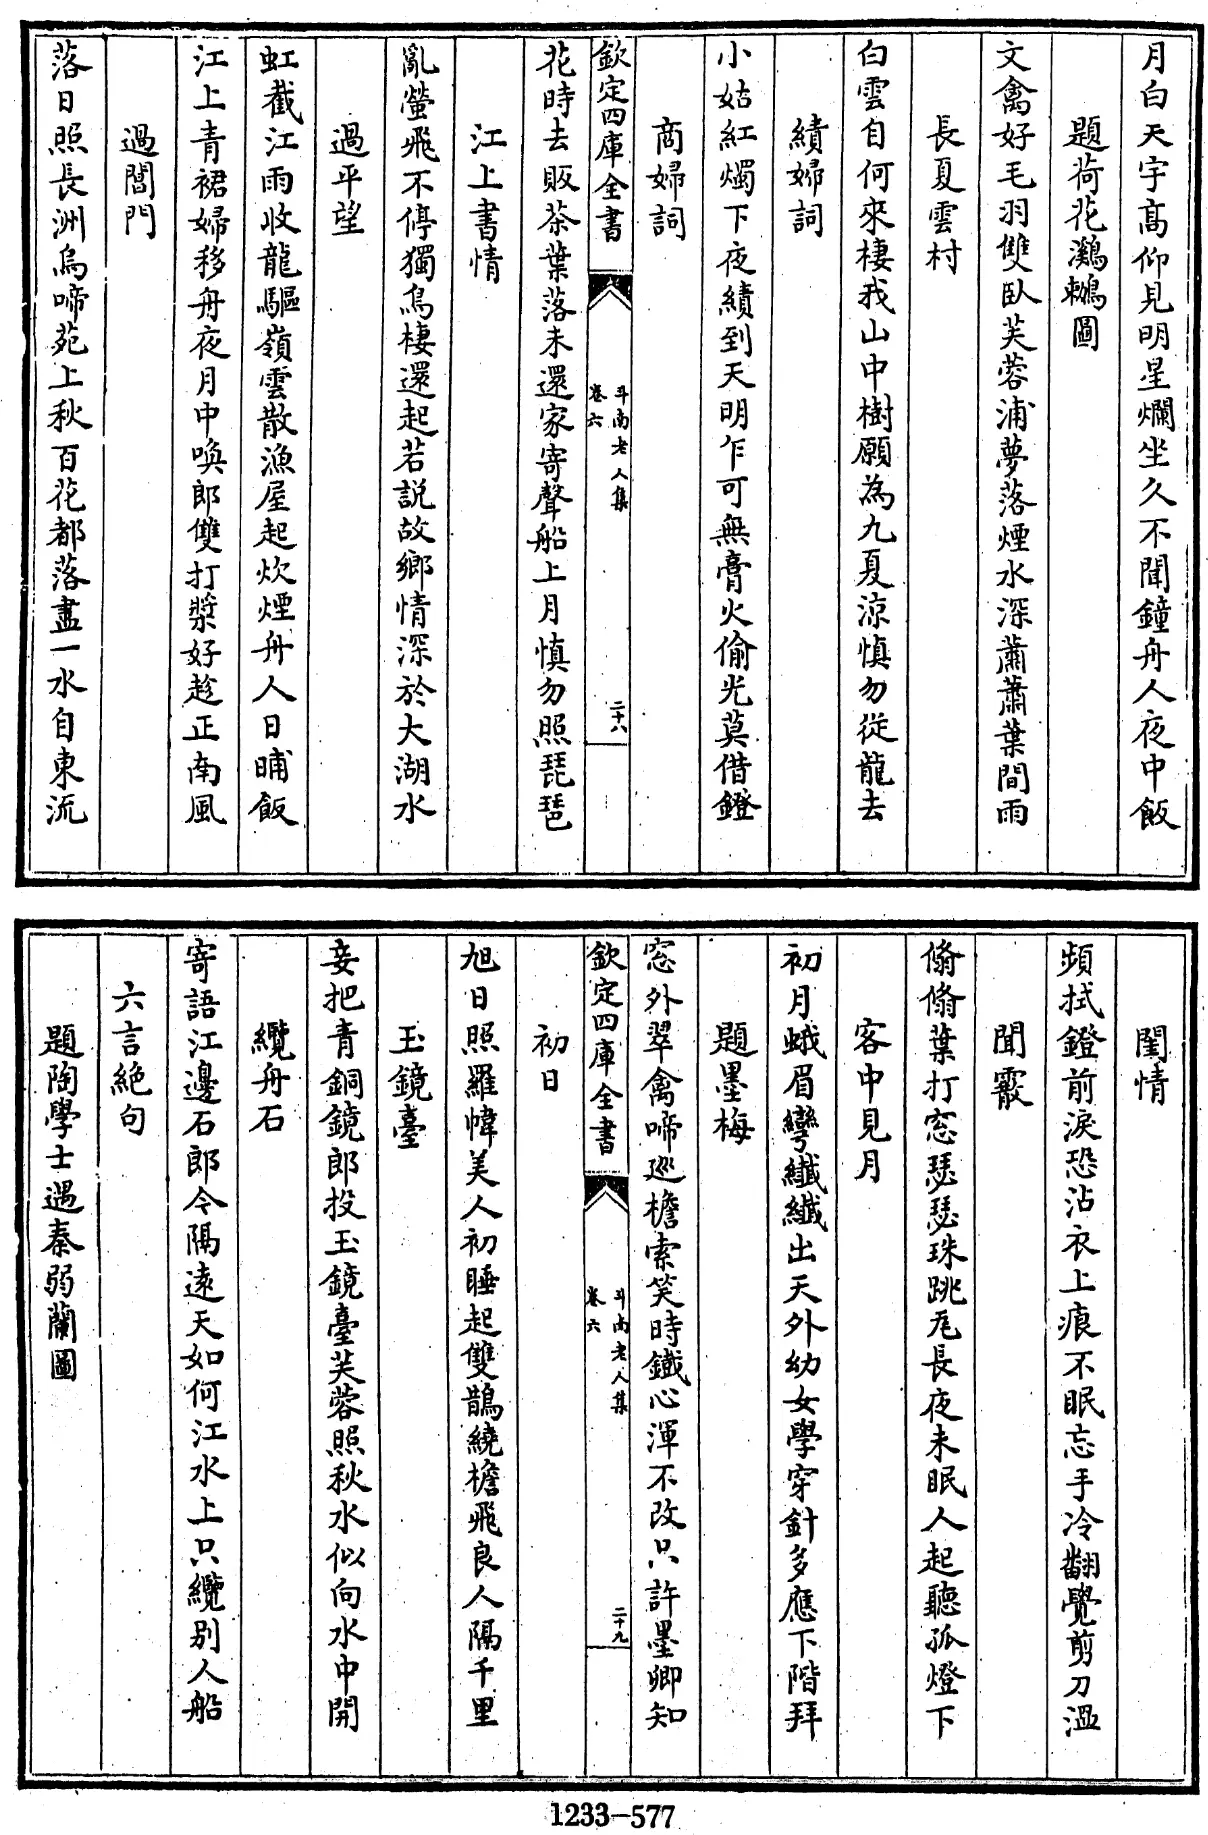 月白天宇高仰見明星爛坐久不聞鐘舟人夜中飯
題荷花鸂鶒圖
文禽好毛羽雙臥芙蓉浦夢落煙水深蕭蕭葉間雨
長夏雲村
白雲自何來棲我山中樹願為九夏涼慎勿從龍去
績婦詞
小姑紅燭下夜績到天明乍可無膏火偷光莫借鐙
商婦詞
欽定四庫全書
斗南老人集
卷六
二十八
花時去販茶葉落未還家寄聲船上月慎勿照琵琶
江上書情
亂螢飛不停獨鳥棲還起若説故鄉情深於大湖水
過平望
虹截江雨收龍驅嶺雲散漁屋起炊煙舟人日晡飯
江上青裙婦移舟夜月中喚郎雙打槳好趁正南風
過閶門
落日照長洲烏啼苑上秋百花都落盡一水自東流
閨情
頻拭鐙前淚恐沾衣上痕不眠忘手冷翻覺剪刀溫
聞霰
翛翛葉打窓瑟瑟珠跳瓦長夜未眠人起聽孤燈下
客中見月
初月蛾眉彎纎纎出天外幼女學穿針多應下階拜
題墨梅
窓外翠禽啼巡檐索笑時鐵心渾不改只許墨卿知
欽定四庫全書
斗南老人集
卷六
二十九
初日
旭日照羅幃美人初睡起雙鵲繞檐飛良人隔千里
玉鏡臺
妾把青銅鏡郎投玉鏡臺芙蓉照秋水似向水中開
纜舟石
寄語江邊石郎今隔遠天如何江水上只纜別人船
六言絶句
題陶學士遇秦弱蘭圖
1233-577